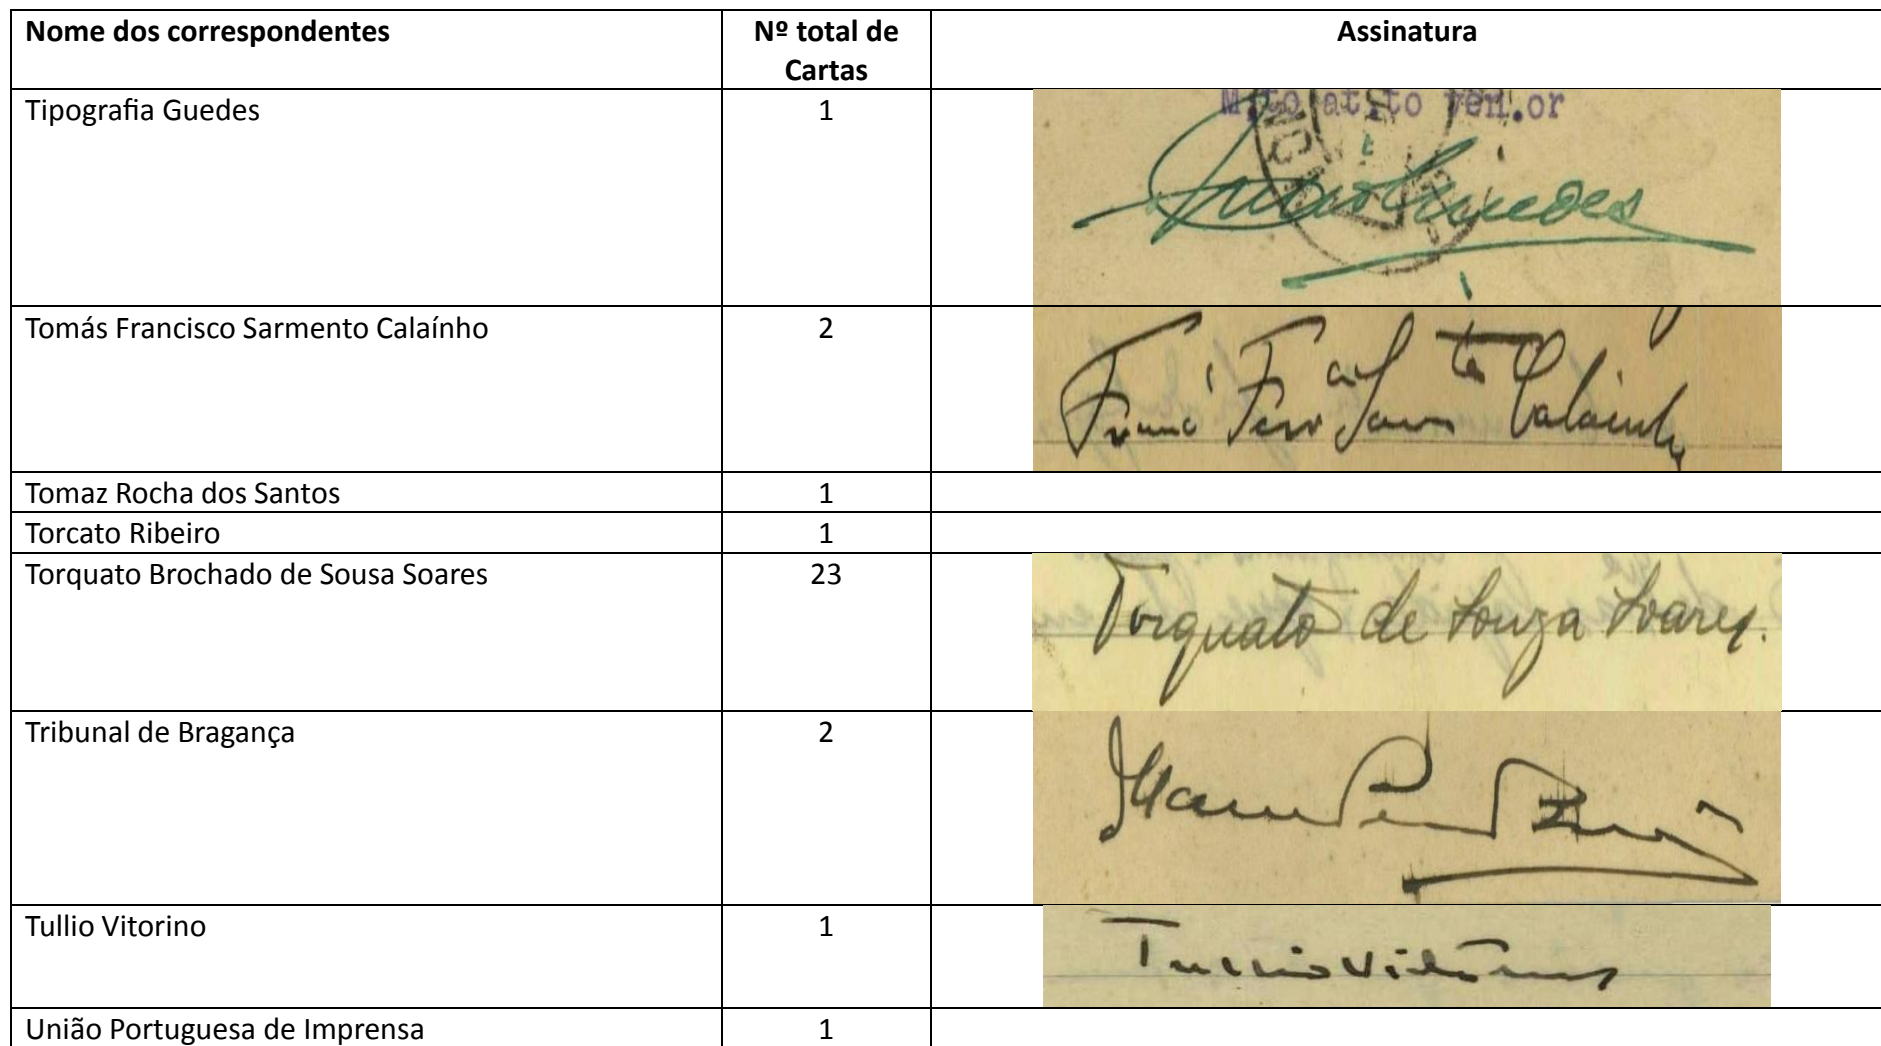 Nome dos correspondentes
Nº total de
Cartas
Assinatura
Tipografia Guedes
1
M.to at.to ven.or
Guedes
Tomás Francisco Sarmento Calaínho
2
Calainho
Tomaz Rocha dos Santos
1
Torcato Ribeiro
1
Torquato Brochado de Sousa Soares
23
Torquato de Souza Soares.
Tribunal de Bragança
2
Tullio Vitorino
1
Tullio Vitorino
União Portuguesa de Imprensa
1